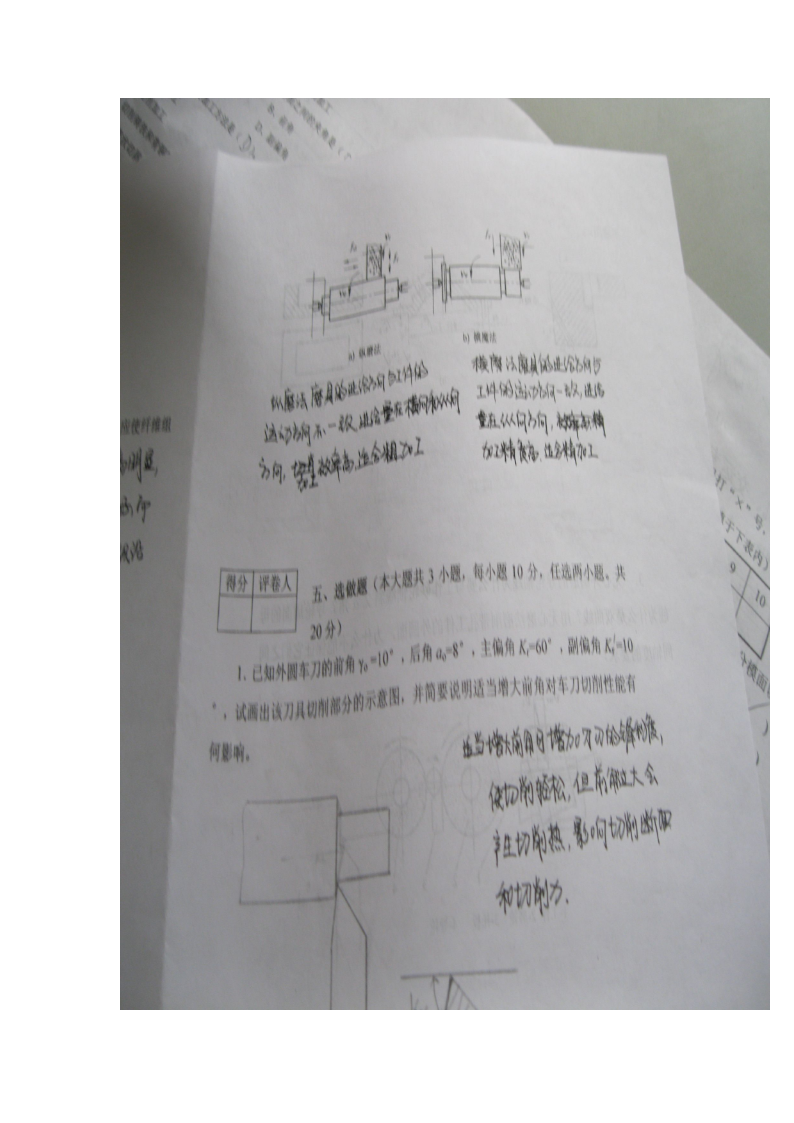 B、前角
D、副偏角
a) 纵磨法
b) 横磨法
纵磨法磨具的进给方向与工件的
运动方向不一致,进给量在横向和纵向
方向,效率高,适合粗加工
横磨法磨具的进给方向与
工件的运动方向一致,进给
量在纵向方向,
加工精度高,适合精加工
应使纤维组
得分 评卷人
五、选做题(本大题共 3 小题,每小题 10 分,任选两小题、共
20 分)
1. 已知外圆车刀的前角 γ₀=10°,后角 α₀=8°,主偏角 Kᵣ=60°,副偏角 Kᵣ′=10
°,试画出该刀具切削部分的示意图,并简要说明适当增大前角对车刀切削性能有
何影响。
适当增大前角可增加
使切削轻松,但前角过大会
产生切削热,影响切削断面
和切削力.
打“×”号.
于下表内)
9 10